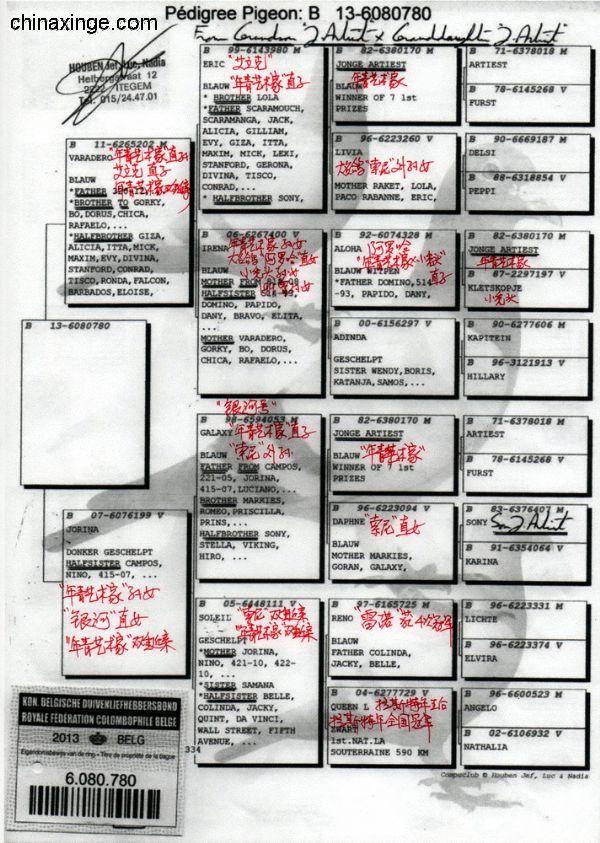 chinaxinge.com
Pédigree Pigeon: B 13-6080780
From Grandson "J. Artist" x Granddaughter "J. Artist"
HOUBEN Jef, Luc, Nadia
ITEGEM
Tel. 015/24.47.01
B 11-6265202 M
VARADERO
"年青艺术家"直孙
艾立克 直子
BLAUW
*FATHER
*BROTHER TO GORKY,
BO, DORUS, CHICA,
RAFAELO,...
*HALFBROTHER GIZA,
ALICIA, ITTA, MICK,
MAXIM, EVY, DIVINA,
STANFORD, CONRAD,
TISCO, RONDA, FALCON,
BARBADOS, ELOISE,..
B 13-6080780
B 07-6076199 V
JORINA
DONKER GESCHELPT
HALFSISTER CAMPOS,
NINO, 415-07, ...
"年青艺术家"孙女
"银河"直女
"年青艺术家"双重近亲
B 99-6143980 M
ERIC "艾立克"
BLAUW "年青艺术家"直子
* BROTHER LOLA
*FATHER SCARAMOUCH,
SCARAMANGA, JACK,
ALICIA, GILLIAM,
EVY, GIZA, ITTA,
MAXIM, MICK, LEXI,
STANFORD, GERONA,
DIVINA, TISCO,
CONRAD,...
* HALFBROTHER SONY,
B 06-6267400 V
IRENA
"年青艺术家"孙女
BLAUW
MOTHER FROM
HALFSISTER 514-93,
DOMINO, PAPIDO,
DANY, BRAVO, ELITA,
...
MOTHER VARADERO,
GORKY, BO, DORUS,
CHICA, RAFAELO,...
"银河号"
B 98-6594053 M
GALAXY "年青艺术家"直子
BLAUW "索尼"外孙
FATHER FROM CAMPOS,
221-05, JORINA,
415-07, LUCIANO,...
BROTHER MARKIES,
ROMEO, PRISCILLA,
PRINS,...
HALFBROTHER SONY,
STELLA, VIKING,
HIRO,...
B 05-6448111 V
SOLEIL "索尼"双重近亲
"年青艺术家"双重近亲
GESCHELPT
*MOTHER JORINA,
NINO, 421-10, 422-
10, ...
*SISTER SAMANA
*HALFSISTER BELLE,
COLINDA, JACKY,
QUINT, DA VINCI,
WALL STREET, FIFTH
AVENUE, ...
334
B 82-6380170 M
JONGE ARTIEST
"年青艺术家"
BLAUW
WINNER OF 7 1st
PRIZES
B 96-6223260 V
LIVIA
"索尼"外孙女
MOTHER RAKET, LOLA,
PACO RABANNE, ERIC,
B 92-6074328 M
ALOHA "阿罗哈"
BLAUW WITPEN
直子
*FATHER DOMINO, 514
-93, PAPIDO, DANY,
B 00-6156297 V
ADINDA
GESCHELPT
SISTER WENDY, BORIS,
KATANJA, SAMOS,...
B 82-6380170 M
JONGE ARTIEST
BLAUW "年青艺术家"
WINNER OF 7 1st
PRIZES
B 96-6223094 V
DAPHNE "索尼"直女
BLAUW
MOTHER MARKIES,
GORAN, GALAXY,
B 97-6165725 M
RENO "雷诺"
BLAUW
FATHER COLINDA,
JACKY, BELLE,
B 04-6277729 V
QUEEN L
ZWART
1st.NAT.LA
SOUTERRAINE 590 KM
B 71-6378018 M
ARTIEST
B 78-6145268 V
FURST
B 90-6669187 M
DELSI
B 88-6318854 V
PEPPI
B 82-6380170 M
JONGE ARTIEST
年青艺术家
B 87-2297197 V
KLETSKOPJE
小秃头
B 90-6277606 M
KAPITEIN
B 96-3121913 V
HILLARY
B 71-6378018 M
ARTIEST
B 78-6145268 V
FURST
B 83-6376407 M
SONY Son J. Artist"
B 91-6354064 V
KARINA
B 96-6223331 M
LICHTE
B 96-6223374 V
ELVIRA
B 96-6600523 M
ANGELO
B 02-6106932 V
NATHALIA
Compuclub © Houben Jef, Luc & Nadia
KON. BELGISCHE DUIVENLIEFHEBBERSBOND
ROYALE FÉDÉRATION COLOMBOPHILE BELGE
2013 BELG
Eigendomsbewijs van de ring - Titre de propriété de la bague
6.080.780